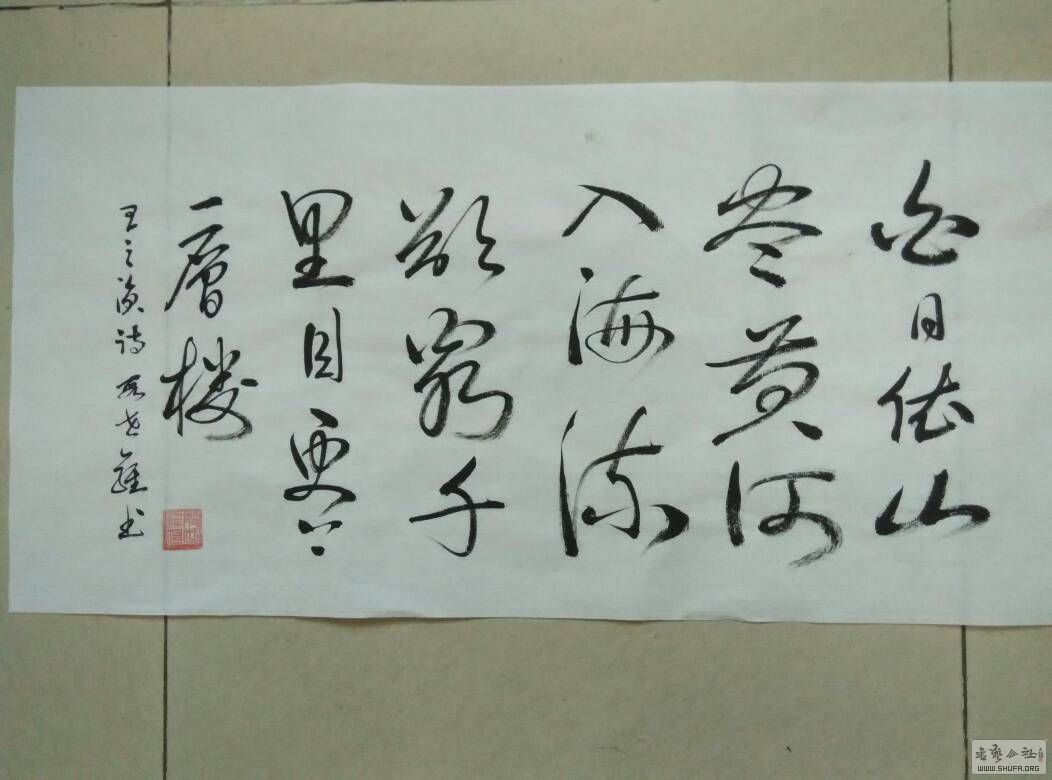 白日依山
尽黄河
入海流
欲窮千
里目更上
一層楼
王之涣诗 书
書藝公社
WWW.SHUFA.ORG